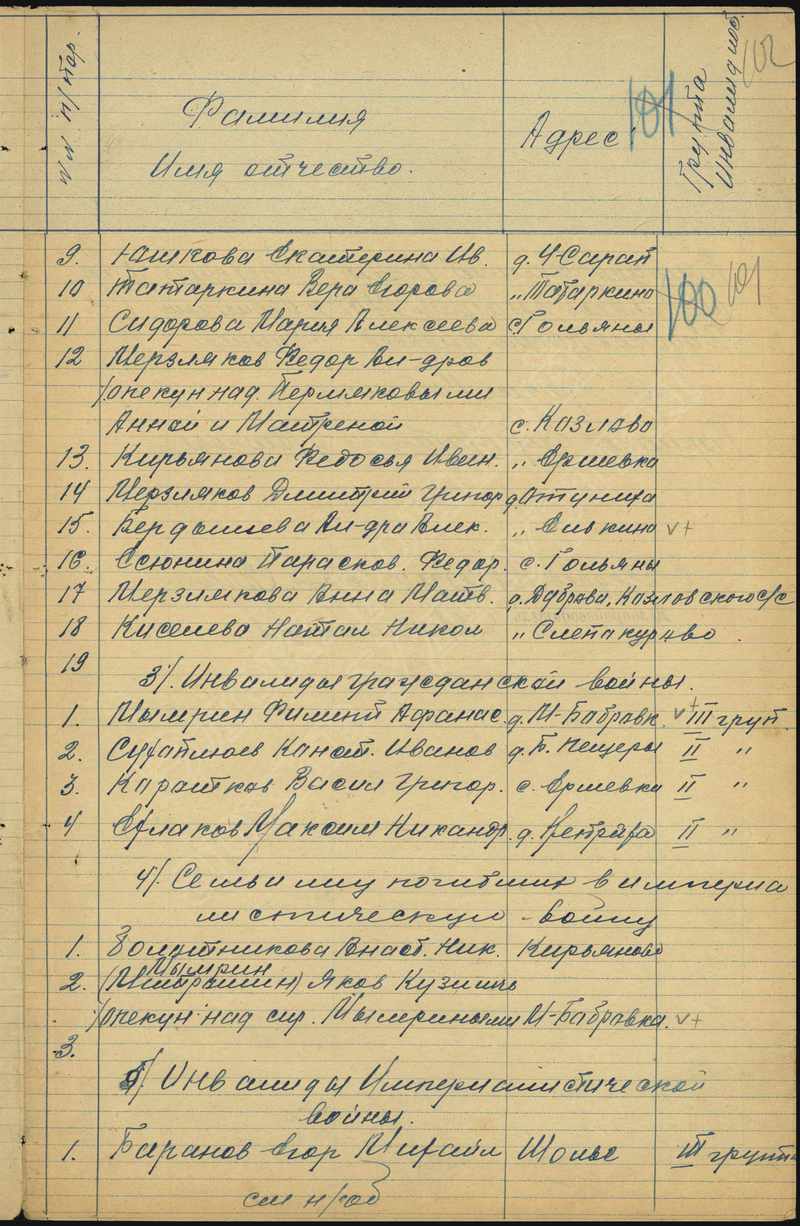 №№ п/пор.
Фамилия
Имя отчество.
Адрес
Группа
Инвалидноб.
101
102
9. Юшкова Екатерина Ив. д. Ч-Сарап
10 Татаркина Вера Егорова " Татаркино
100 101
11 Сидорова Мария Алексеева с. Гольяны
12 Мерзляков Федор Ал-дров
/опекун над. Пермяковыми
Анной и Матреной с. Казлово
13. Кирьянова Федосья Иван. " Ершевка
14 Мерзляков Дмитрий Григор д.
15. Бердышева Ал-дра Алек. " Силькино v+
16. Сюнина Парасков. Федор. с. Гольяны
17 Мерзлякова Анна Матв. д. Дуброва, Казловского с/с
18 Киселева Натал Никол " Слепакурово.
19
3/. Инвалиды гражданской войны.
1. Мымрин Филипп Афанас. д. М-Бабровк. v+ III груп.
2. Иванов д. Б. Пещеры II "
3. Каротков Васил Григор. с. Ершевка II "
4 Максим Никандр. д. II "
4/. Семьи лиц погибших в империа
листическую войну
1. Болотникова Анаст. Ник. Кирьяново
Мымрин
2. (Митрошин) Яков Кузмичь
/опекун над сир. Мымриными М-Бабровка. v+
3.
5/ Инвалиды Империалистической
войны.
1. Баранов Егор Михайл Шолье III групп
см н/об